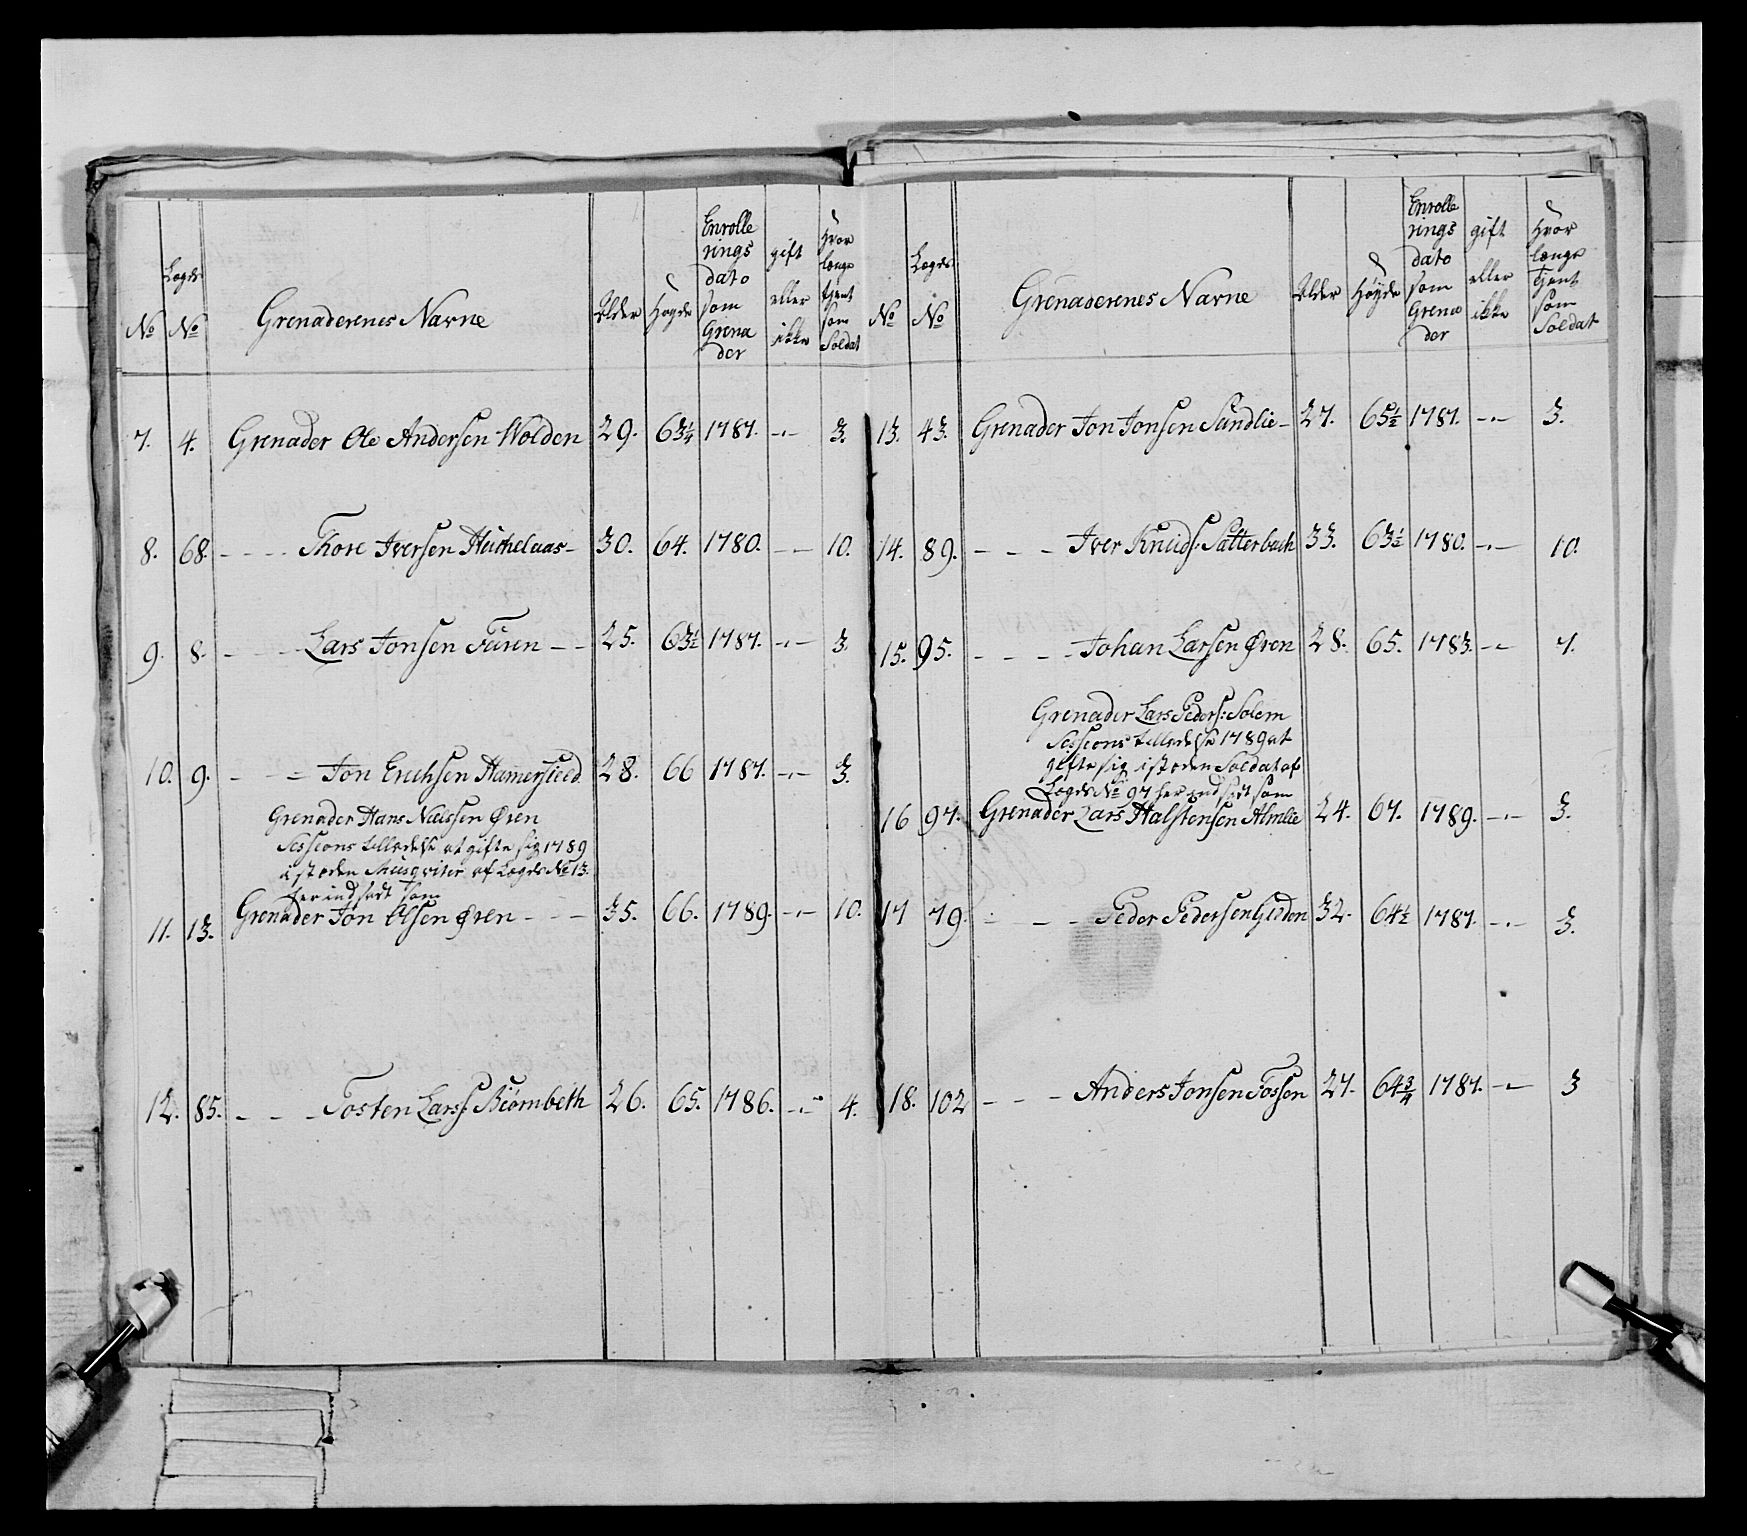 No
Lægds No
Grenaderenes Navne
Alder
Høyde
Enrolle
rings
dato
som
Grena
der
gift
eller
ikke
Hvor
længe
tjent
som
Soldat
7. 4. Grenader Ole Andersen Wolden 29. 63¼ 1787. -.- 3.
8. 68. - - - Thore Iversen 30. 64. 1780. - - 10.
9. 8. - - - Lars Jonsen Furen - - 25. 63½ 1787. -.- 3.
10. 9. - - - Jon Erichsen 28. 66 1787. -.- 3.
Grenader Hans Nielssen Øren
Sessions tilladelse at gifte sig 1789
i støden Musqvitir af Lægds No 13.
her indsadt som
11. 13. Grenader Jon Olsen Øren - - - 35. 66. 1789. -.- 10.
12. 85. - - - Tosten Larss: Biørnbeth 26. 65. 1786. -.- 4.
No
Lægds No
Grenaderenes Navne
Alder
Høyde
Enrolle
rings
dato
som
Grena
der
gift
eller
ikke
Hvor
længe
Tjent
som
Soldat
13. 43. Grenader Jon Jonsen Sundlie - 27. 65½ 1787. -.- 3.
14. 89. - - - Iver Knuds: Sætterbach 33. 63½ 1780. -.- 10.
15. 95. - - - - Johan Larsen Øren 28. 65. 1783. -.- 7.
Grenader Lars Peders: Solem
Sessions tilladelse 1789 at
gifte sig i støden Soldat af
Lægds No 97 her indsadt som
16 97. Grenader Lars Halstensen Almlie 24. 67. 1789. -.- 3.
17 79. - - - Peder Pedersen Gidden 32. 64½ 1787. -.- 3.
18. 102 - - - Anders Jonsen Fossen 27. 64¾ 1787. -.- 3